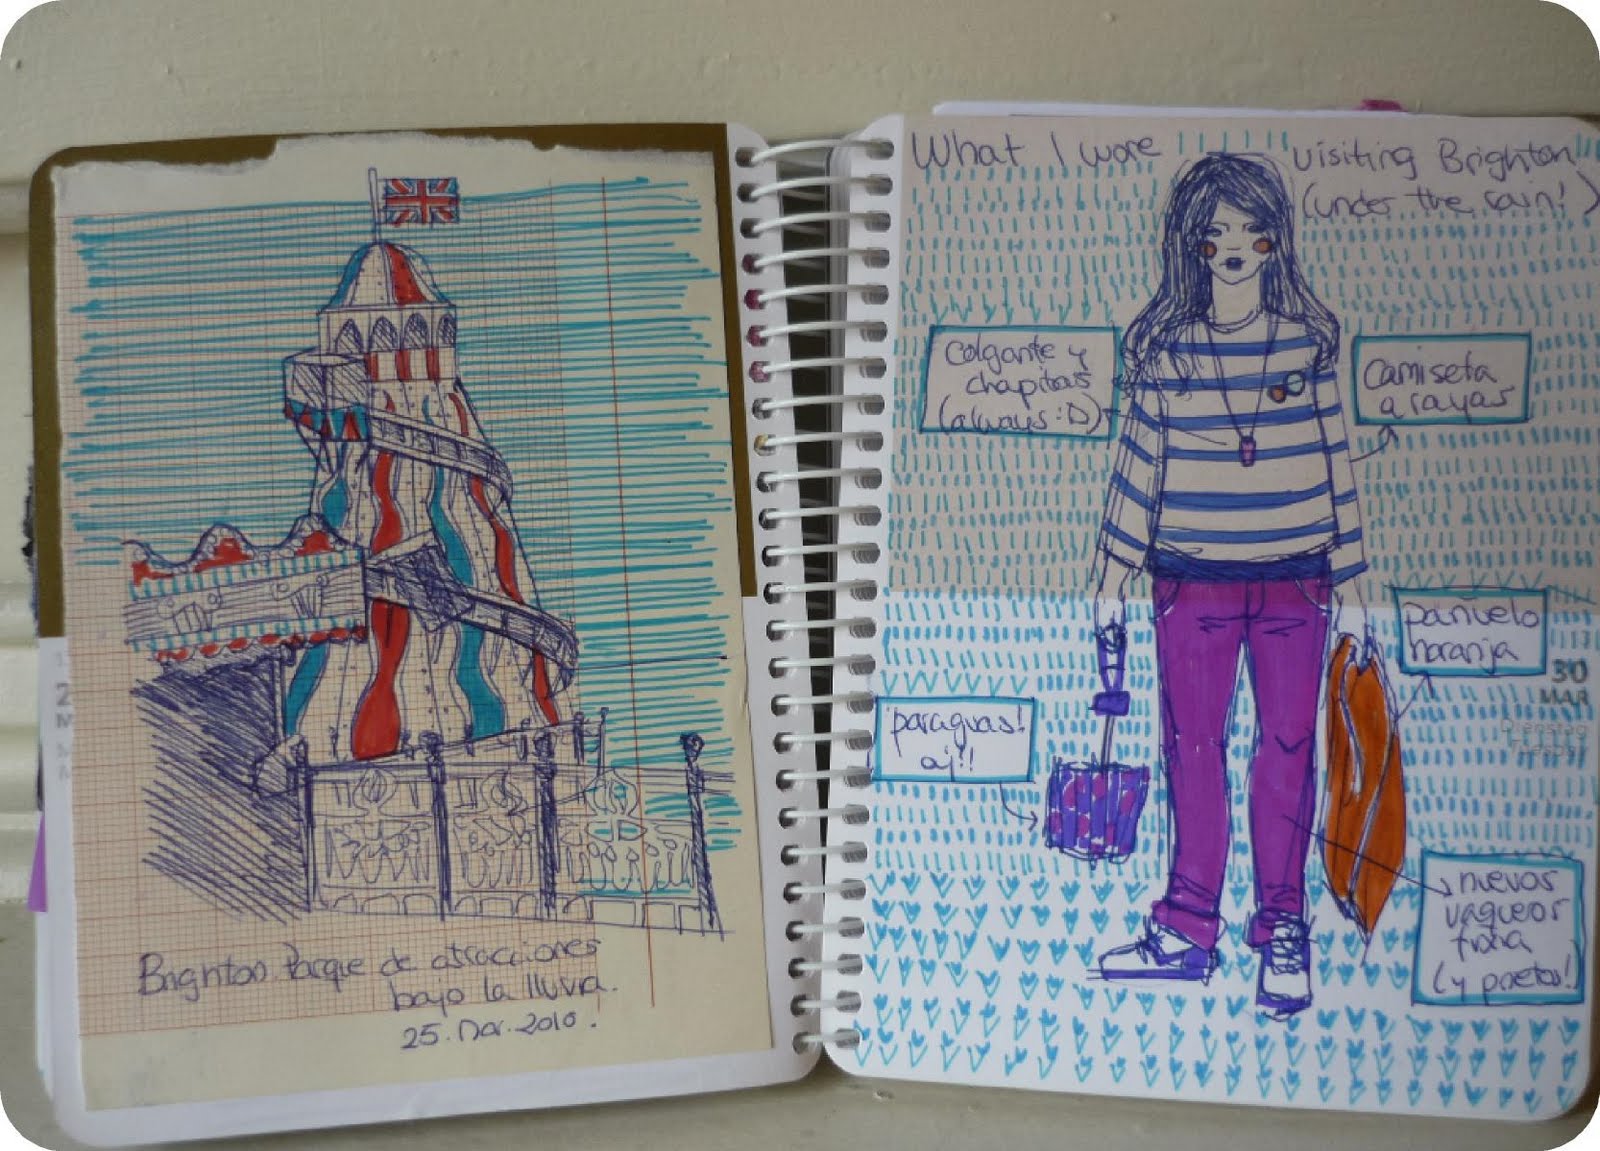 Brighton. Parque de atracciones
bajo la lluvia.
25. Mar. 2010.
What I wore visiting Brighton
(under the rain!)
Colgante y
chapitas
(always :D)
Camiseta
a rayas
pañuelo
naranja
¡paraguas!
aj!!
30
MAR
Dienstag
Tuesday
nuevos
vaqueros
(y prietos!)